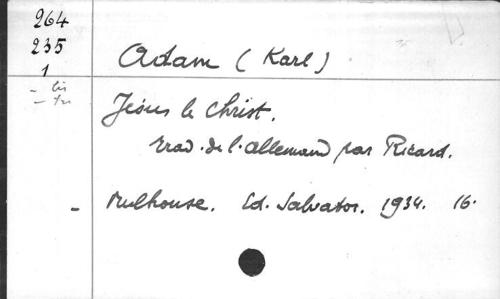 264
235
1
- bis
- ter
Adam (Karl)
Jésus le Christ.
trad. de l'allemand par Ricard.
- Mulhouse. Ed. Salvator. 1934. 16.